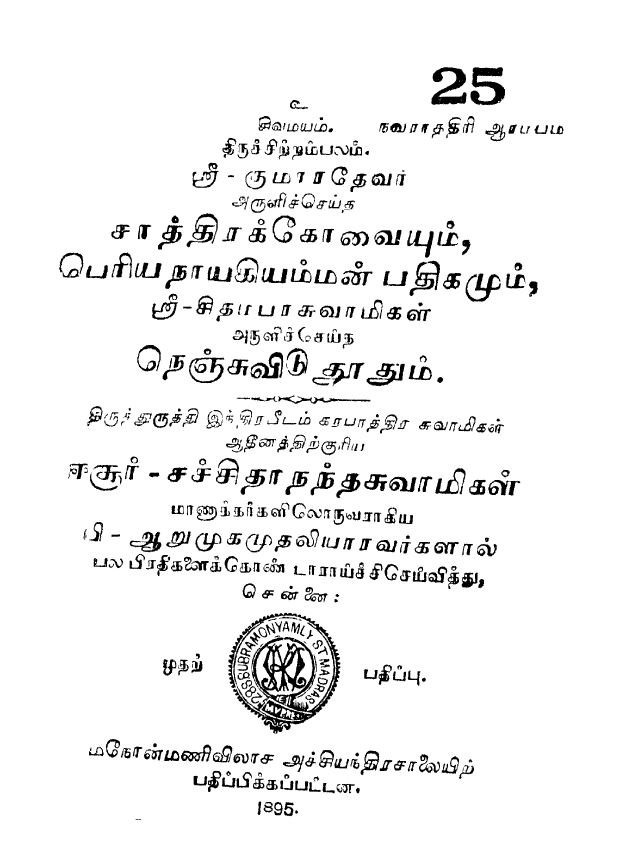 25
உ
சிவமயம். நவராத்திரி ஆரம்பம
திருச்சிற்றம்பலம்.
ஸ்ரீ - குமாரதேவர்
அருளிச்செய்த
சாத்திரக்கோவையும்,
பெரியநாயகியம்மன் பதிகமும்,
ஸ்ரீ - சிதம்பரசுவாமிகள்
அருளிச்செய்த
நெஞ்சுவிடு தூதும்.
திருத்துருத்தி இந்திரபீடம் கரபாத்திர சுவாமிகள்
ஆதீனத்திற்குரிய
ஈசூர் - சச்சிதாநந்தசுவாமிகள்
மாணாக்கர்களிலொருவராகிய
பி - ஆறுமுகமுதலியாரவர்களால்
பல பிரதிகளைக்கொண் டாராய்ச்சிசெய்வித்து,
சென்னை:
முதற் பதிப்பு.
286 SUBRAMONYAMLY ST MADRAS
மநோன்மணிவிலாச அச்சியந்திரசாலையிற்
பதிப்பிக்கப்பட்டன.
1895.